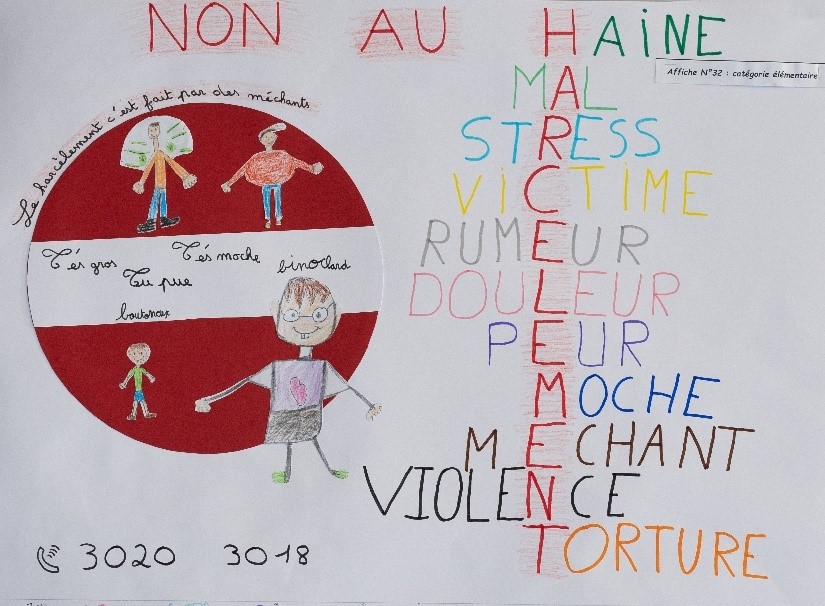 NON AU HAINE
Affiche N°32 : catégorie élémentaire
MAL
STRESS
VICTIME
RUMEUR
DOULEUR
PEUR
MOCHE
MECHANT
VIOLENCE
TORTURE
Le harcèlement c'est fait par des méchants
T'és gros
T'és moche
binoclard
Tu pue
boutoneux
3020 3018